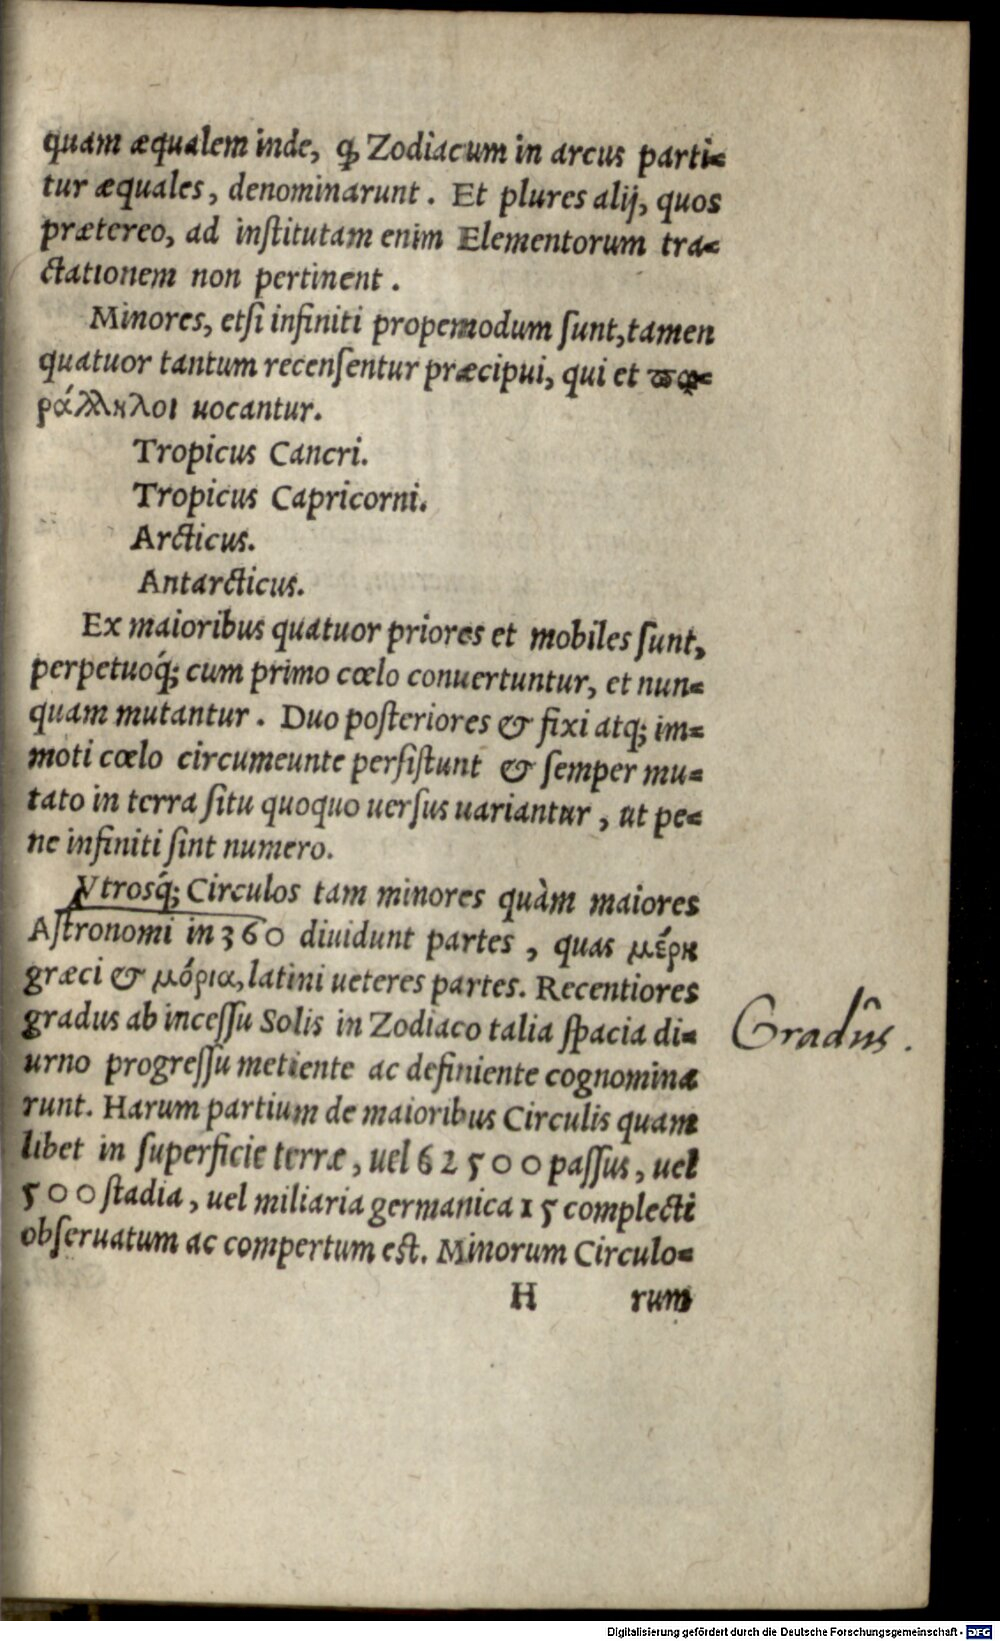 quam æqualem inde, ꝙ Zodiacum in arcus parti=
tur æquales, denominarunt. Et plures alij, quos
prætereo, ad institutam enim Elementorum tra=
ctationem non pertinent.
Minores, etsi infiniti propemodum sunt, tamen
quatuor tantum recensentur præcipui, qui et πα=
ράλληλοι uocantur.
Tropicus Cancri.
Tropicus Capricorni.
Arcticus.
Antarcticus.
Ex maioribus quatuor priores et mobiles sunt,
perpetuoq́; cum primo cœlo conuertuntur, et nun=
quam mutantur. Duo posteriores & fixi atq; im=
moti cœlo circumeunte persistunt & semper mu=
tato in terra situ quoquo uersus uariantur, ut pe=
ne infiniti sint numero.
Vtrosq́; Circulos tam minores quàm maiores
Astronomi in 360 diuidunt partes, quas μέρη
græci & μόρια, latini ueteres partes. Recentiores
gradus ab incessu Solis in Zodiaco talia spacia di=
urno progressu metiente ac definiente cognomina
runt. Harum partium de maioribus Circulis quam
libet in superficie terræ, uel 62500 passus, uel
500 stadia, uel miliaria germanica 15 complecti
obseruatum ac compertum est. Minorum Circulo=
H rum
Gradûs.
Digitalisierung gefördert durch die Deutsche Forschungsgemeinschaft - DFG